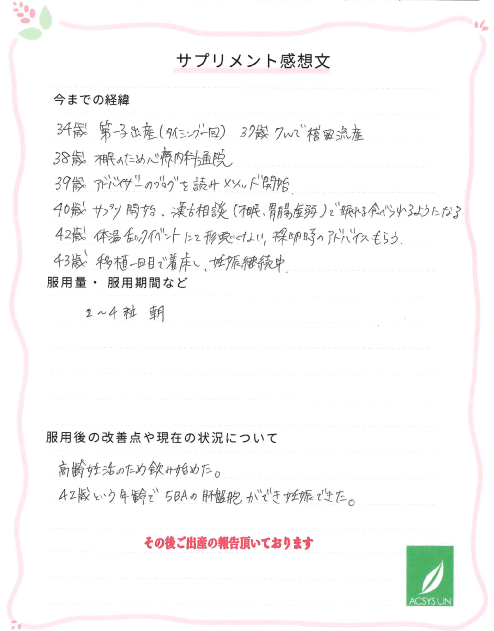 サプリメント感想文
今までの経緯
34歳 第一子出産(タイミング一回) 37歳 クルて稽留流産
38歳 不眠のため心療内科通院
39歳 アドバイザーのブログを読みメソッド開始
40歳 サプリ開始、漢方相談(不眠、胃腸虚弱)で眠れる食べられるようになる
42歳 体温 イベントにて形悪くない、採卵時のアドバイスもらう
43歳 移植一回目で着床し、妊娠継続中
服用量・服用期間など
2〜4粒 朝
服用後の改善点や現在の状況について
高齢妊活のため飲み始めた。
42歳という年齢で 5BAの胚盤胞ができ妊娠できた。
その後ご出産の報告頂いております
ACSYS UN